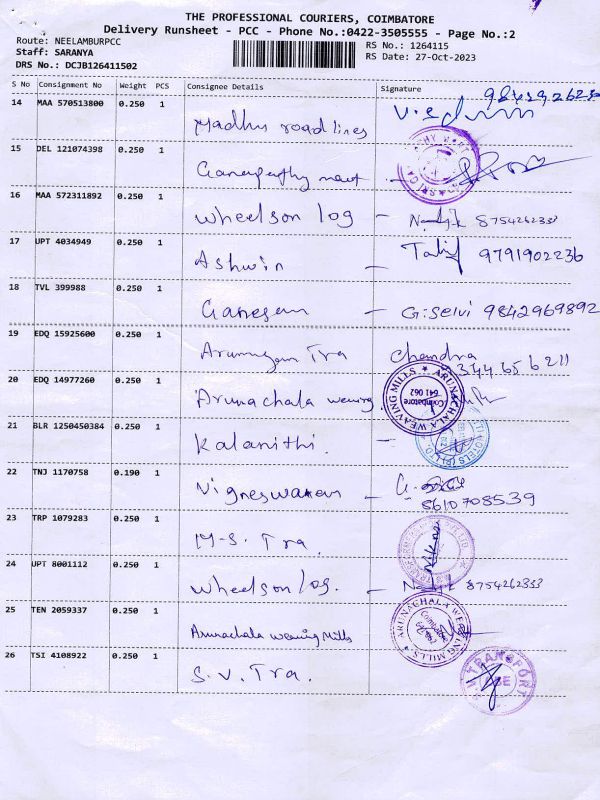 THE PROFESSIONAL COURIERS, COIMBATORE
Delivery Runsheet - PCC - Phone No.:0422-3505555 - Page No.:2
Route: NEELAMBURPCC
RS No.: 1264115
Staff: SARANYA
RS Date: 27-Oct-2023
DRS No.: DCJB126411502
S No Consignment No Weight PCS Consignee Details Signature
14 MAA 570513800 0.250 1 Madhu roadlines
15 DEL 121074398 0.250 1
16 MAA 572311892 0.250 1 wheelson log - 8754262333
17 UPT 4034949 0.250 1 Ashwin - 9791902236
18 TVL 399988 0.250 1 Ganesan - G. Selvi 9842969892
19 EDQ 15925600 0.250 1 Tra Chandra
20 EDQ 14977260 0.250 1 Arunachala weaving
ARUNACHALA WEAVING MILLS
Coimbatore
641 062
21 BLR 1250450384 0.250 1 Kalanithi. -
22 TNJ 1170758 0.190 1 Vigneswaran - 8610708539
23 TRP 1079283 0.250 1 M-S. Tra.
24 UPT 8001112 0.250 1 wheelson log. - 8754262333
25 TEN 2059337 0.250 1 Arunachala weaving Mills
ARUNACHALA WEAVING MILLS
Coimbatore
26 TSI 4108922 0.250 1 S. V. Tra.
TRANSPORT